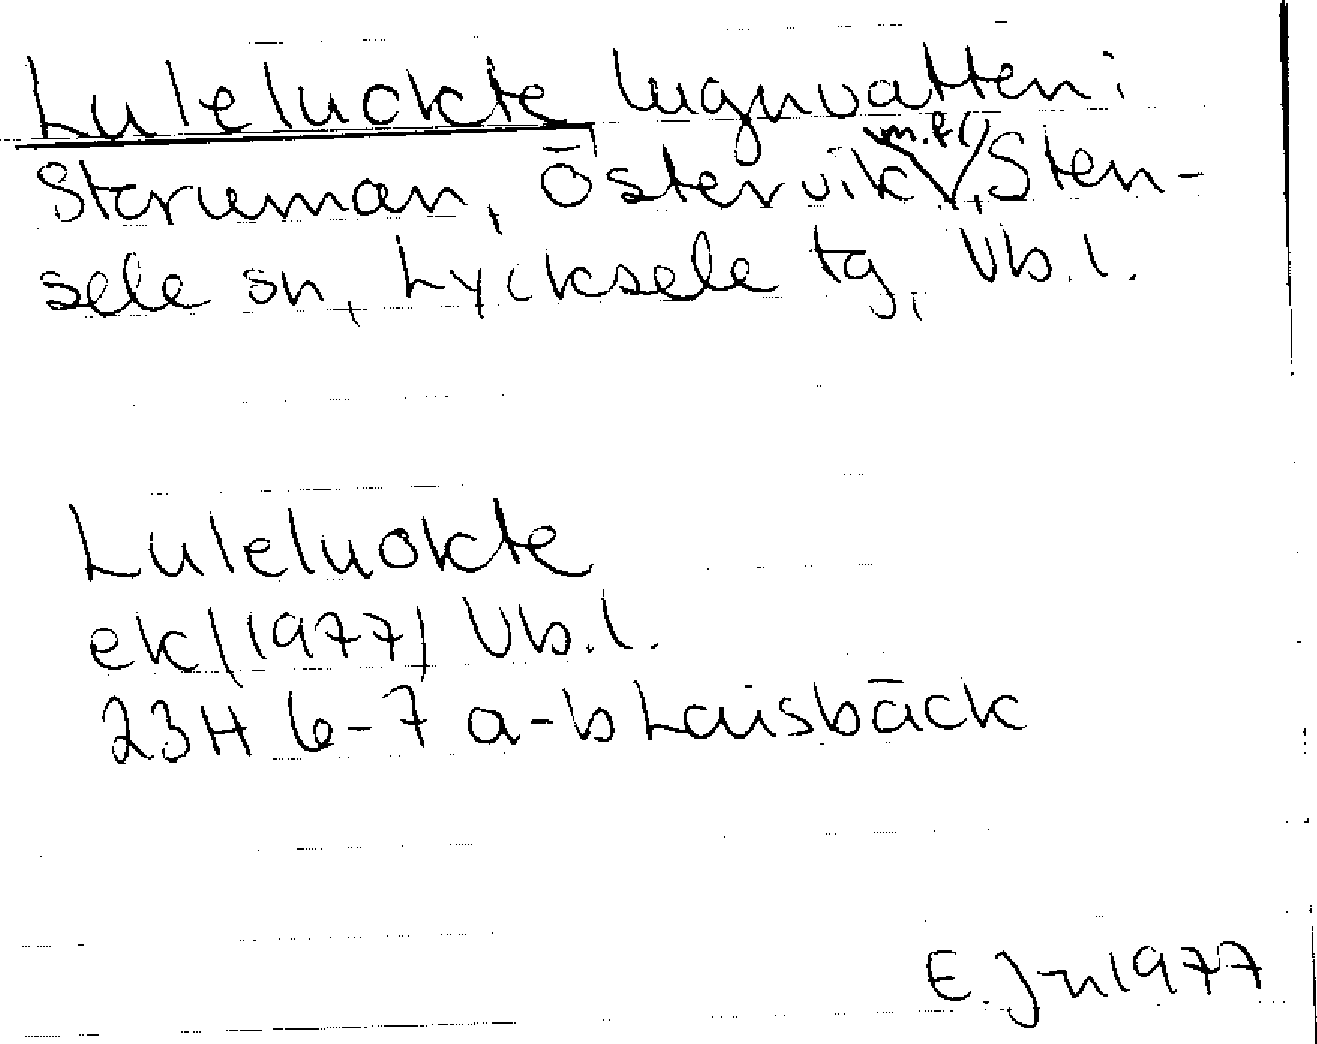 Luleluokte lugnvatten i
Storuman, Östervik m.fl., Sten-
sele sn, Lycksele tg, Vb.l.
Luleluokte
ek (1977) Vb.l.
23H 6-7 a-b Laisbäck
E. Jn 1977